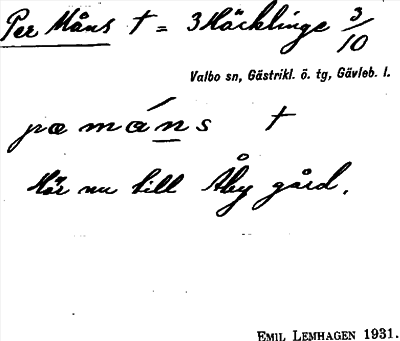 Per Måns † = 3 Häcklinge 3/10
Valbo sn, Gästrikl. ö. tg, Gävleb. l.
pæ máns †
Hör nu till Åby gård.
EMIL LEMHAGEN 1931.